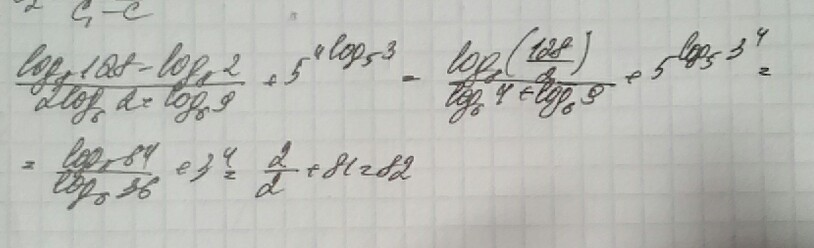 C₁ – C
(log₈128 - log₈2)/(2log₆2 + log₆9) + 5^(4log₅3) = log₈(128/2)/(log₆4 + log₆9) + 5^(log₅3⁴) =
= log₈64/log₆36 + 3⁴ = 2/2 + 81 = 82